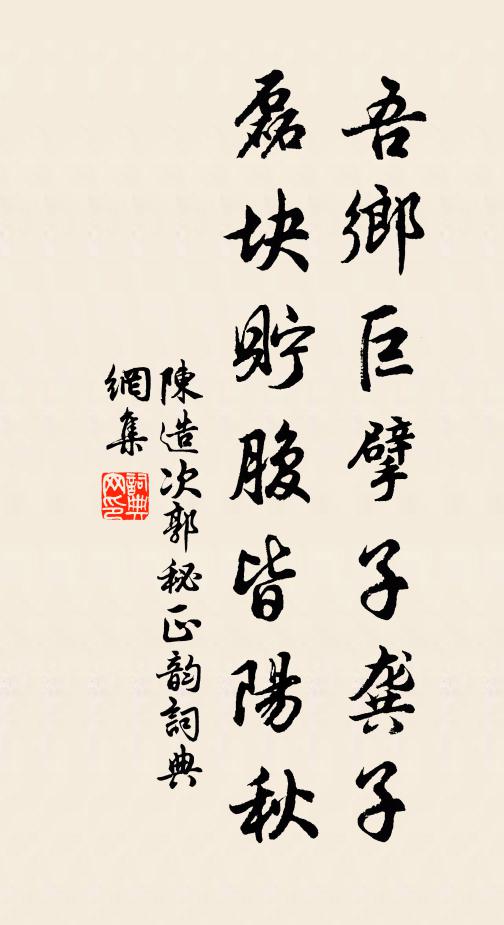 吾鄉巨擘子龔子
磊块貯腹皆陽秋
陳造次郭秘正韵詞典
網集
詞典
网印